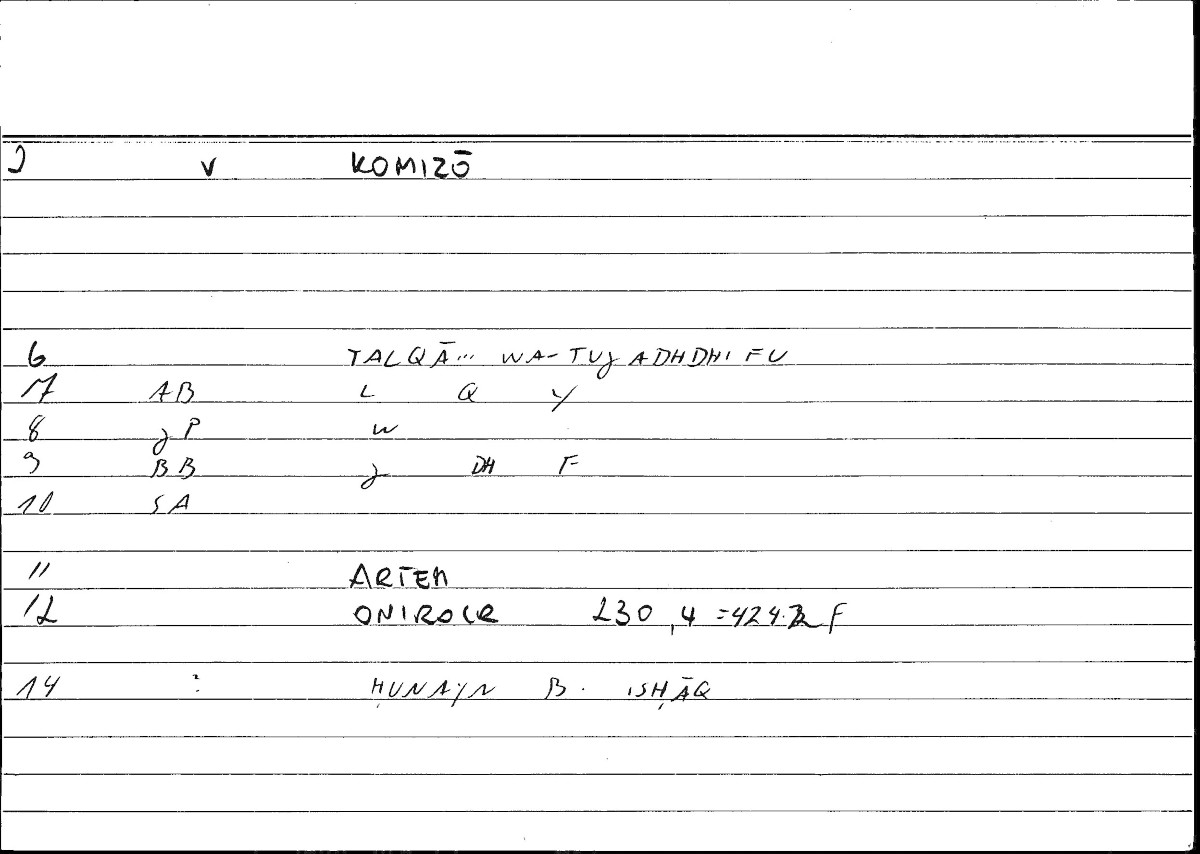 J V KOMIZŌ
6 TALQĀ... WA-TUJADHDHIFU
7 AB L Q Y
8 JP W
9 BB J DH F
10 SA
11 ARTEM
12 ONIROCR 230,4 =424.
14 : ḤUNAYN B. ISḤĀQ